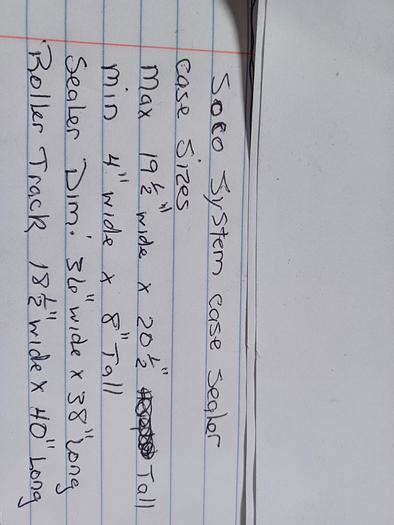 Soco System case Sealer
case Sizes
Max 19 1/2" wide x 20 1/2" Tall
Min 4" wide x 8" Tall
Sealer Dim: 36" wide x 38" Long
Roller Track 18 1/2" wide x 40" Long